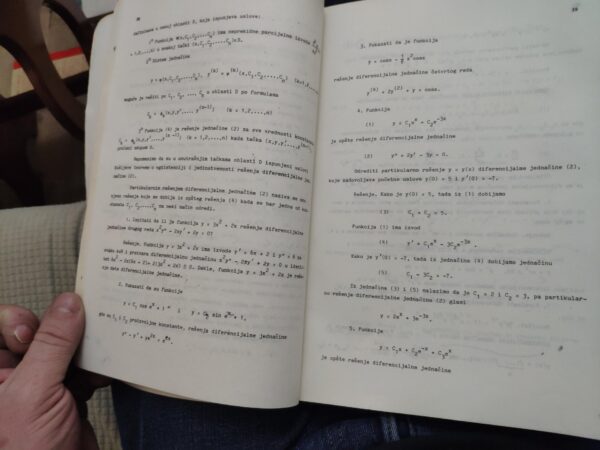 38
definisana u nekoj oblasti D, koja ispunjava uslove:
1° Funkcija φ(x,C₁,C₂,...,Cₙ) ima neprekidne parcijalne izvode
u svakoj tački (x,C₁,C₂,...,Cₙ)∈D.
2° Sistem jednačina
y = φ(x,C₁,C₂,...,Cₙ), y⁽ᵏ⁾ = φ⁽ᵏ⁾(x,C₁,C₂,...,Cₙ)
moguće je rešiti po C₁, C₂, ..., Cₙ u oblasti D po formulama
(k = 1,2,...,n)
3° Funkcija (4) je rešenje jednačine (2) za sve vrednosti konstanata
(k = 1,2,...,n) kada tačka
prolazi skupom D.
Napomenimo da su u unutrašnjim tačkama oblasti D ispunjeni uslovi
Košijeve teoreme o egzistenciji i jedinstvenosti rešenja diferencijalne jednačine
(2).
Partikularnim rešenjem diferencijalne jednačine (2) naziva se
njeno rešenje koje se dobija iz opšteg rešenja (4) kada se bar jedna od
konstanti C₁, C₂,...,Cₙ na neki način odredi.
1. Ispitati da li je funkcija y = 3x² + 2x rešenje diferencijalne
jednačine drugog reda x²y" - 2xy' + 2y = 0?
Rešenje. Funkcija y = 3x² + 2x ima izvode y' = 6x + 2 i y" = 6 za
svako x∈R i pretvara diferencijalnu jednačinu x²y" - 2xy' + 2y = 0 u
≡ 0. Dakle, funkcija y = 3x² + 2x je
date diferencijalne jednačine.
2. Dokazati da su funkcije
gde su C₁ i C₂ proizvoljne konstante, rešenja diferencijalne jednačine
39
3. Pokazati da je funkcija
rešenje diferencijalne jednačine četvrtog reda
y⁽⁴⁾ + 2y⁽²⁾ + y = cosx.
4. Funkcija
(1) y = C₁eˣ + C₂e⁻³ˣ
je opšte rešenje diferencijalne jednačine
(2) y" + 2y' - 3y = 0.
Odrediti partikularno rešenje y = y(x) diferencijalne jednačine (2),
koje zadovoljava početne uslove y(0) = 5 i y'(0) = -7.
Rešenje. Kako je y(0) = 5, tada iz (1) dobijamo
(3) C₁ + C₂ = 5.
Funkcija (1) ima izvod
(4) y' = C₁eˣ - 3C₂e⁻³ˣ.
Kako je y'(0) = -7, tada iz jednačine (4) dobijamo jednačinu
(5) C₁ - 3C₂ = -7.
Iz jednačina (3) i (5) nalazimo da je C₁ = 2 i C₂ = 3, pa partikularno
rešenje diferencijalne jednačine (2) glasi
y = 2eˣ + 3e⁻³ˣ.
5. Funkcija
y = C₁x + C₂e⁻ˣ + C₃eˣ
je opšte rešenje diferencijalne jednačine